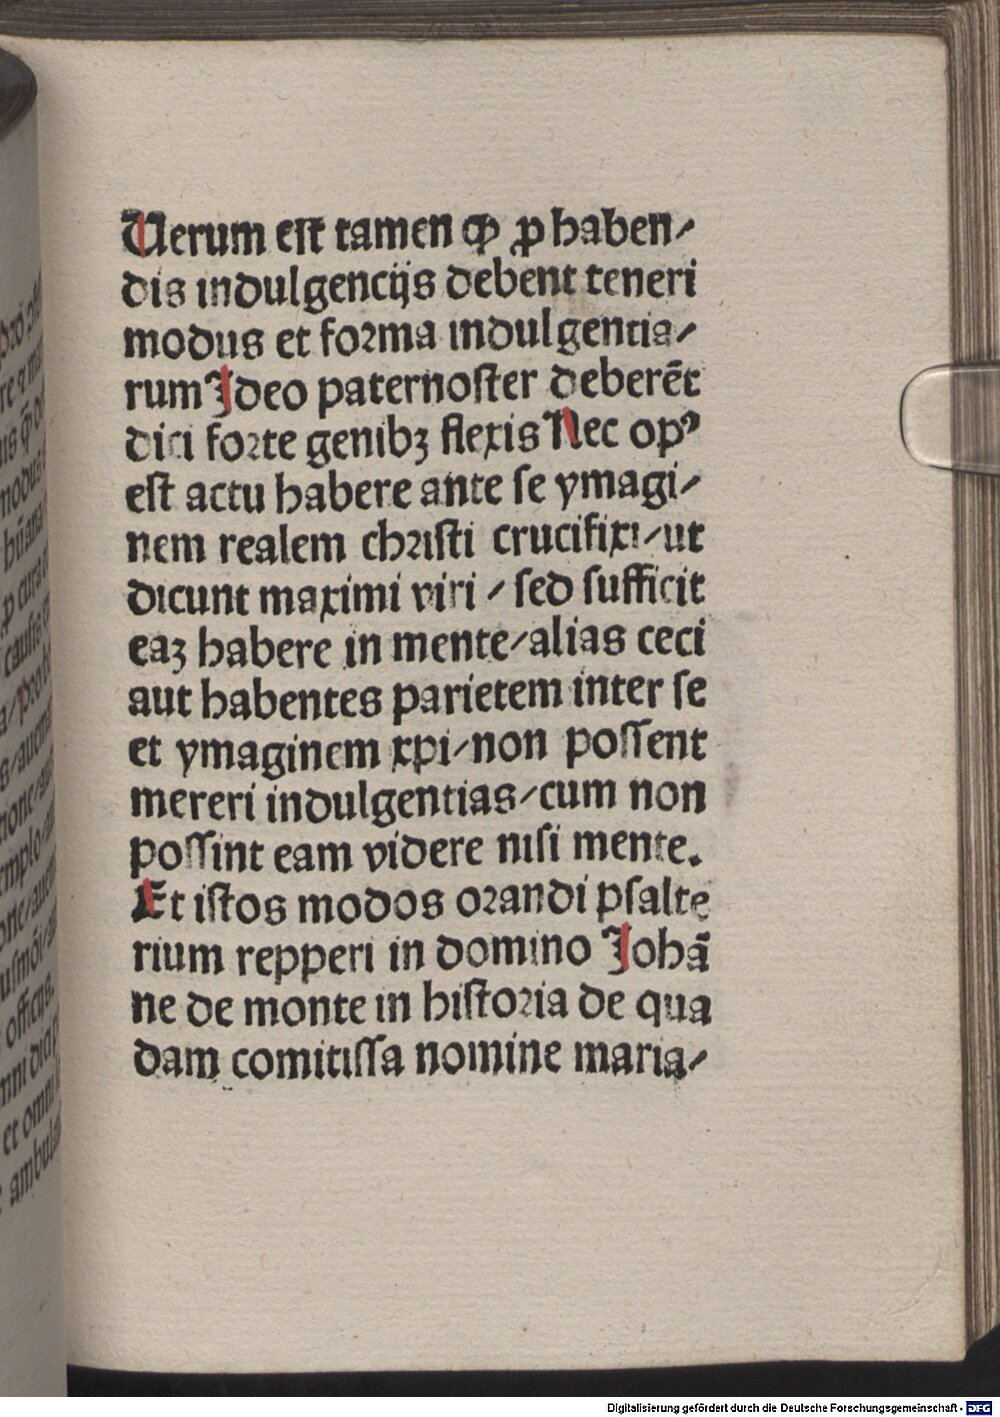 Uerum est tamen ꝙ ꝓ haben⸗
dis indulgencijs debent teneri
modus et forma indulgentia⸗
rum Ideo paternoster deberēt
dici forte genibꝫ flexis Nec opꝰ
est actu habere ante se ymagi⸗
nem realem christi crucifixi/ut
dicunt maximi viri / sed sufficit
eaꝫ habere in mente/alias ceci
aut habentes parietem inter se
et ymaginem xpi/non possent
mereri indulgentias/cum non
possint eam videre nisi mente.
Et istos modos orandi psalte
rium repperi in domino Johā
ne de monte in historia de qua
dam comitissa nomine maria/
Digitalisierung gefördert durch die Deutsche Forschungsgemeinschaft - DFG